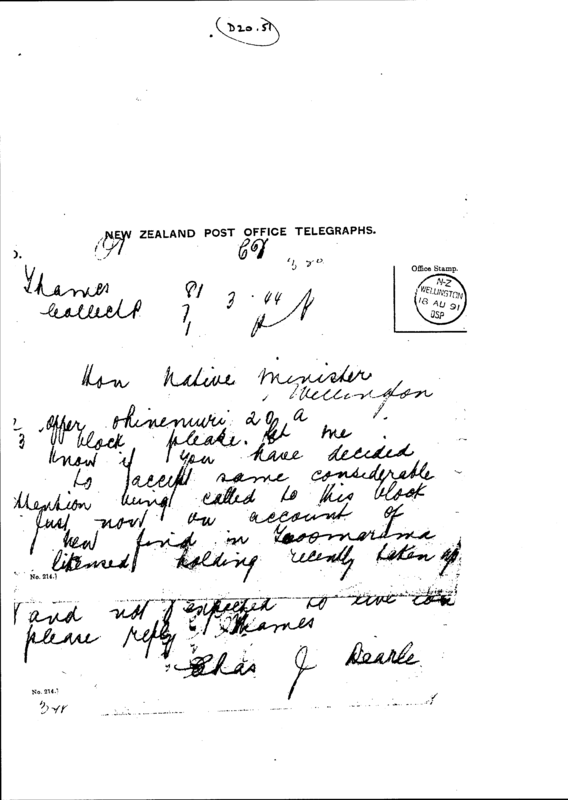 D20.51
NEW ZEALAND POST OFFICE TELEGRAPHS.
Office Stamp.
Thames 81 3.44
Collect 7
1
N-Z
WELLINGTON
18 AU 91
OSP
Hon Native Minister
Wellington
offer Ohinemuri 20 a
block please. let me
know if you have decided
to accept same considerable
attention being called to this block
just now on account of
new find in
licensed holding recently taken up
No. 214.]
and not expected to live
please reply Thames
Chas J Dearle
No. 214.]